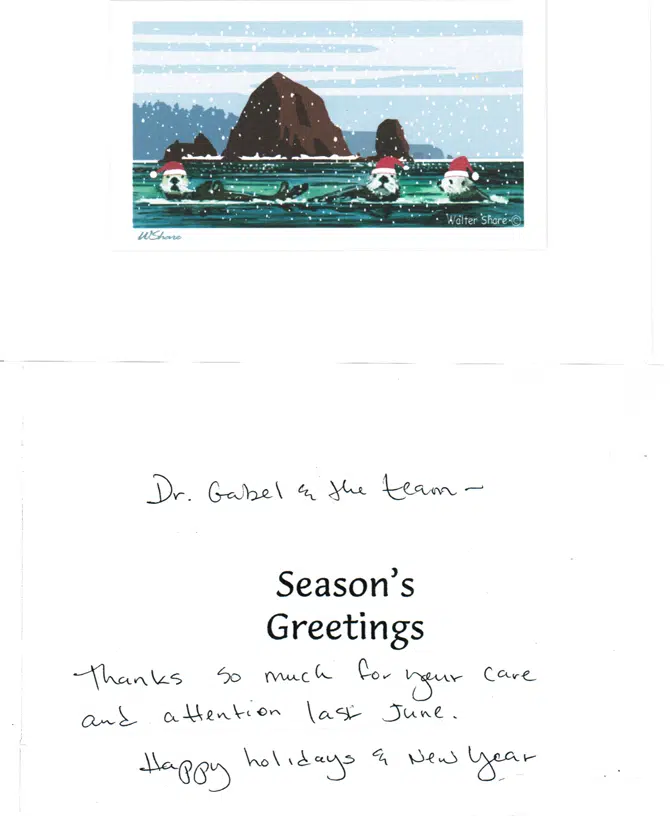 Walter Share ©
WShare
Dr. Gabel & the team –
Season's
Greetings
Thanks so much for your care
and attention last June.
Happy holidays & New Year